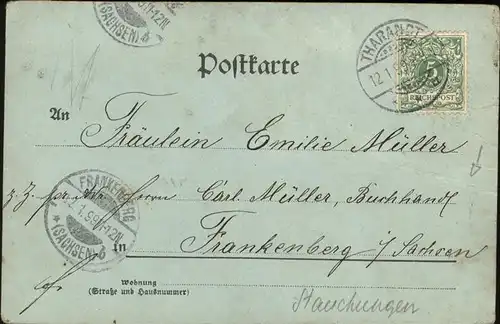 (SACHSEN) b
Postkarte
THARANDT
12.1.
5
REICHSPOST
An
Fräulein Emilie Müller
z. Z. Herrn Carl Müller, Buchhandl
FRANKENBERG
1.99.
(SACHSEN) b
in Frankenberg i/Sachsen
Wohnung
(Straße und Hausnummer)
Stauchungen